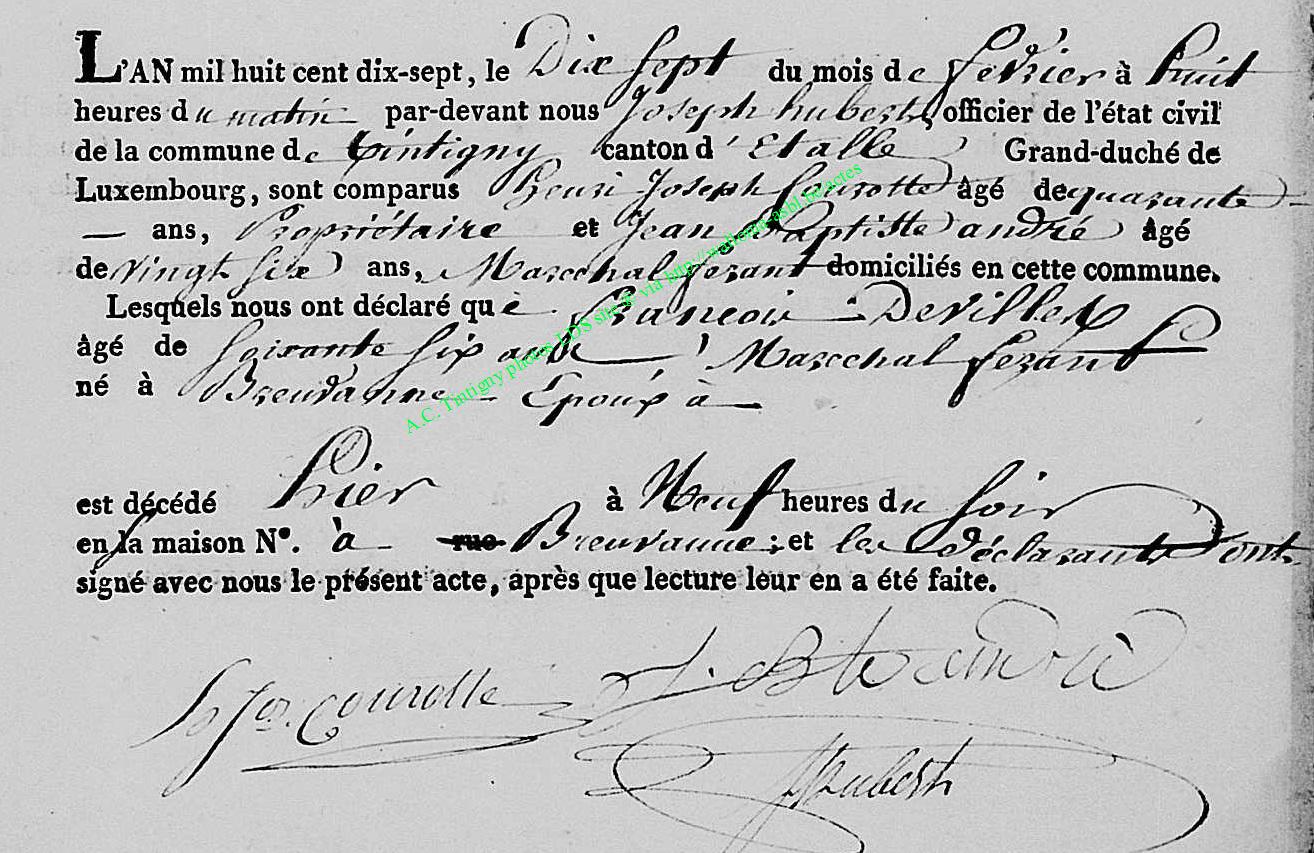 L'AN mil huit cent dix-sept, le Dix Sept du mois de fevrier à huit
heures du matin par-devant nous Joseph hubert, officier de l'état civil
de la commune de tintigny canton d'Etalle Grand-duché de
Luxembourg, sont comparus henri Joseph Courotte âgé de quarante
— ans, Propriétaire et Jean Baptiste andré âgé
de vingt six ans, Marechal ferant domiciliés en cette commune.
Lesquels nous ont déclaré que François Devillez
âgé de Soixante Six ans Marechal ferant
né à Breuvanne - Epoux à —
est décédé hier à Neuf heures du Soir
en sa maison N°. à rue Breuvanne; et les déclarants ont
signé avec nous le présent acte, après que lecture leur en a été faite.
h Jos. Courotte J. Bte andré
Hubert
A.C. Tintigny photos LDS site & via http://wallonia-asbl.be/actes